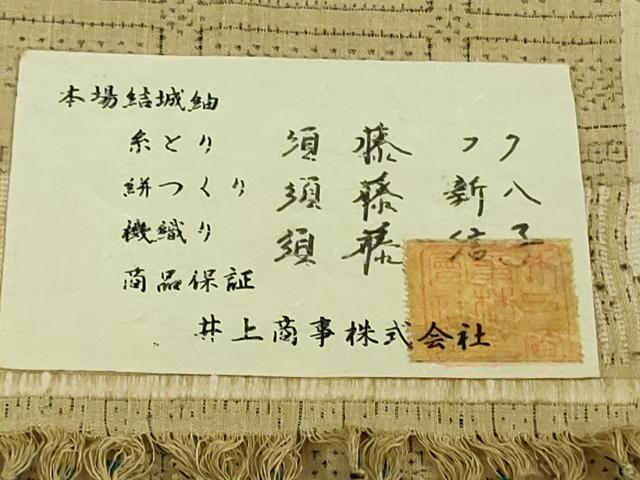 本場結城紬
糸とり 須藤 フク
絣つくり 須藤 新八
機織り 須藤 信子
商品保証
井上商事株式会社